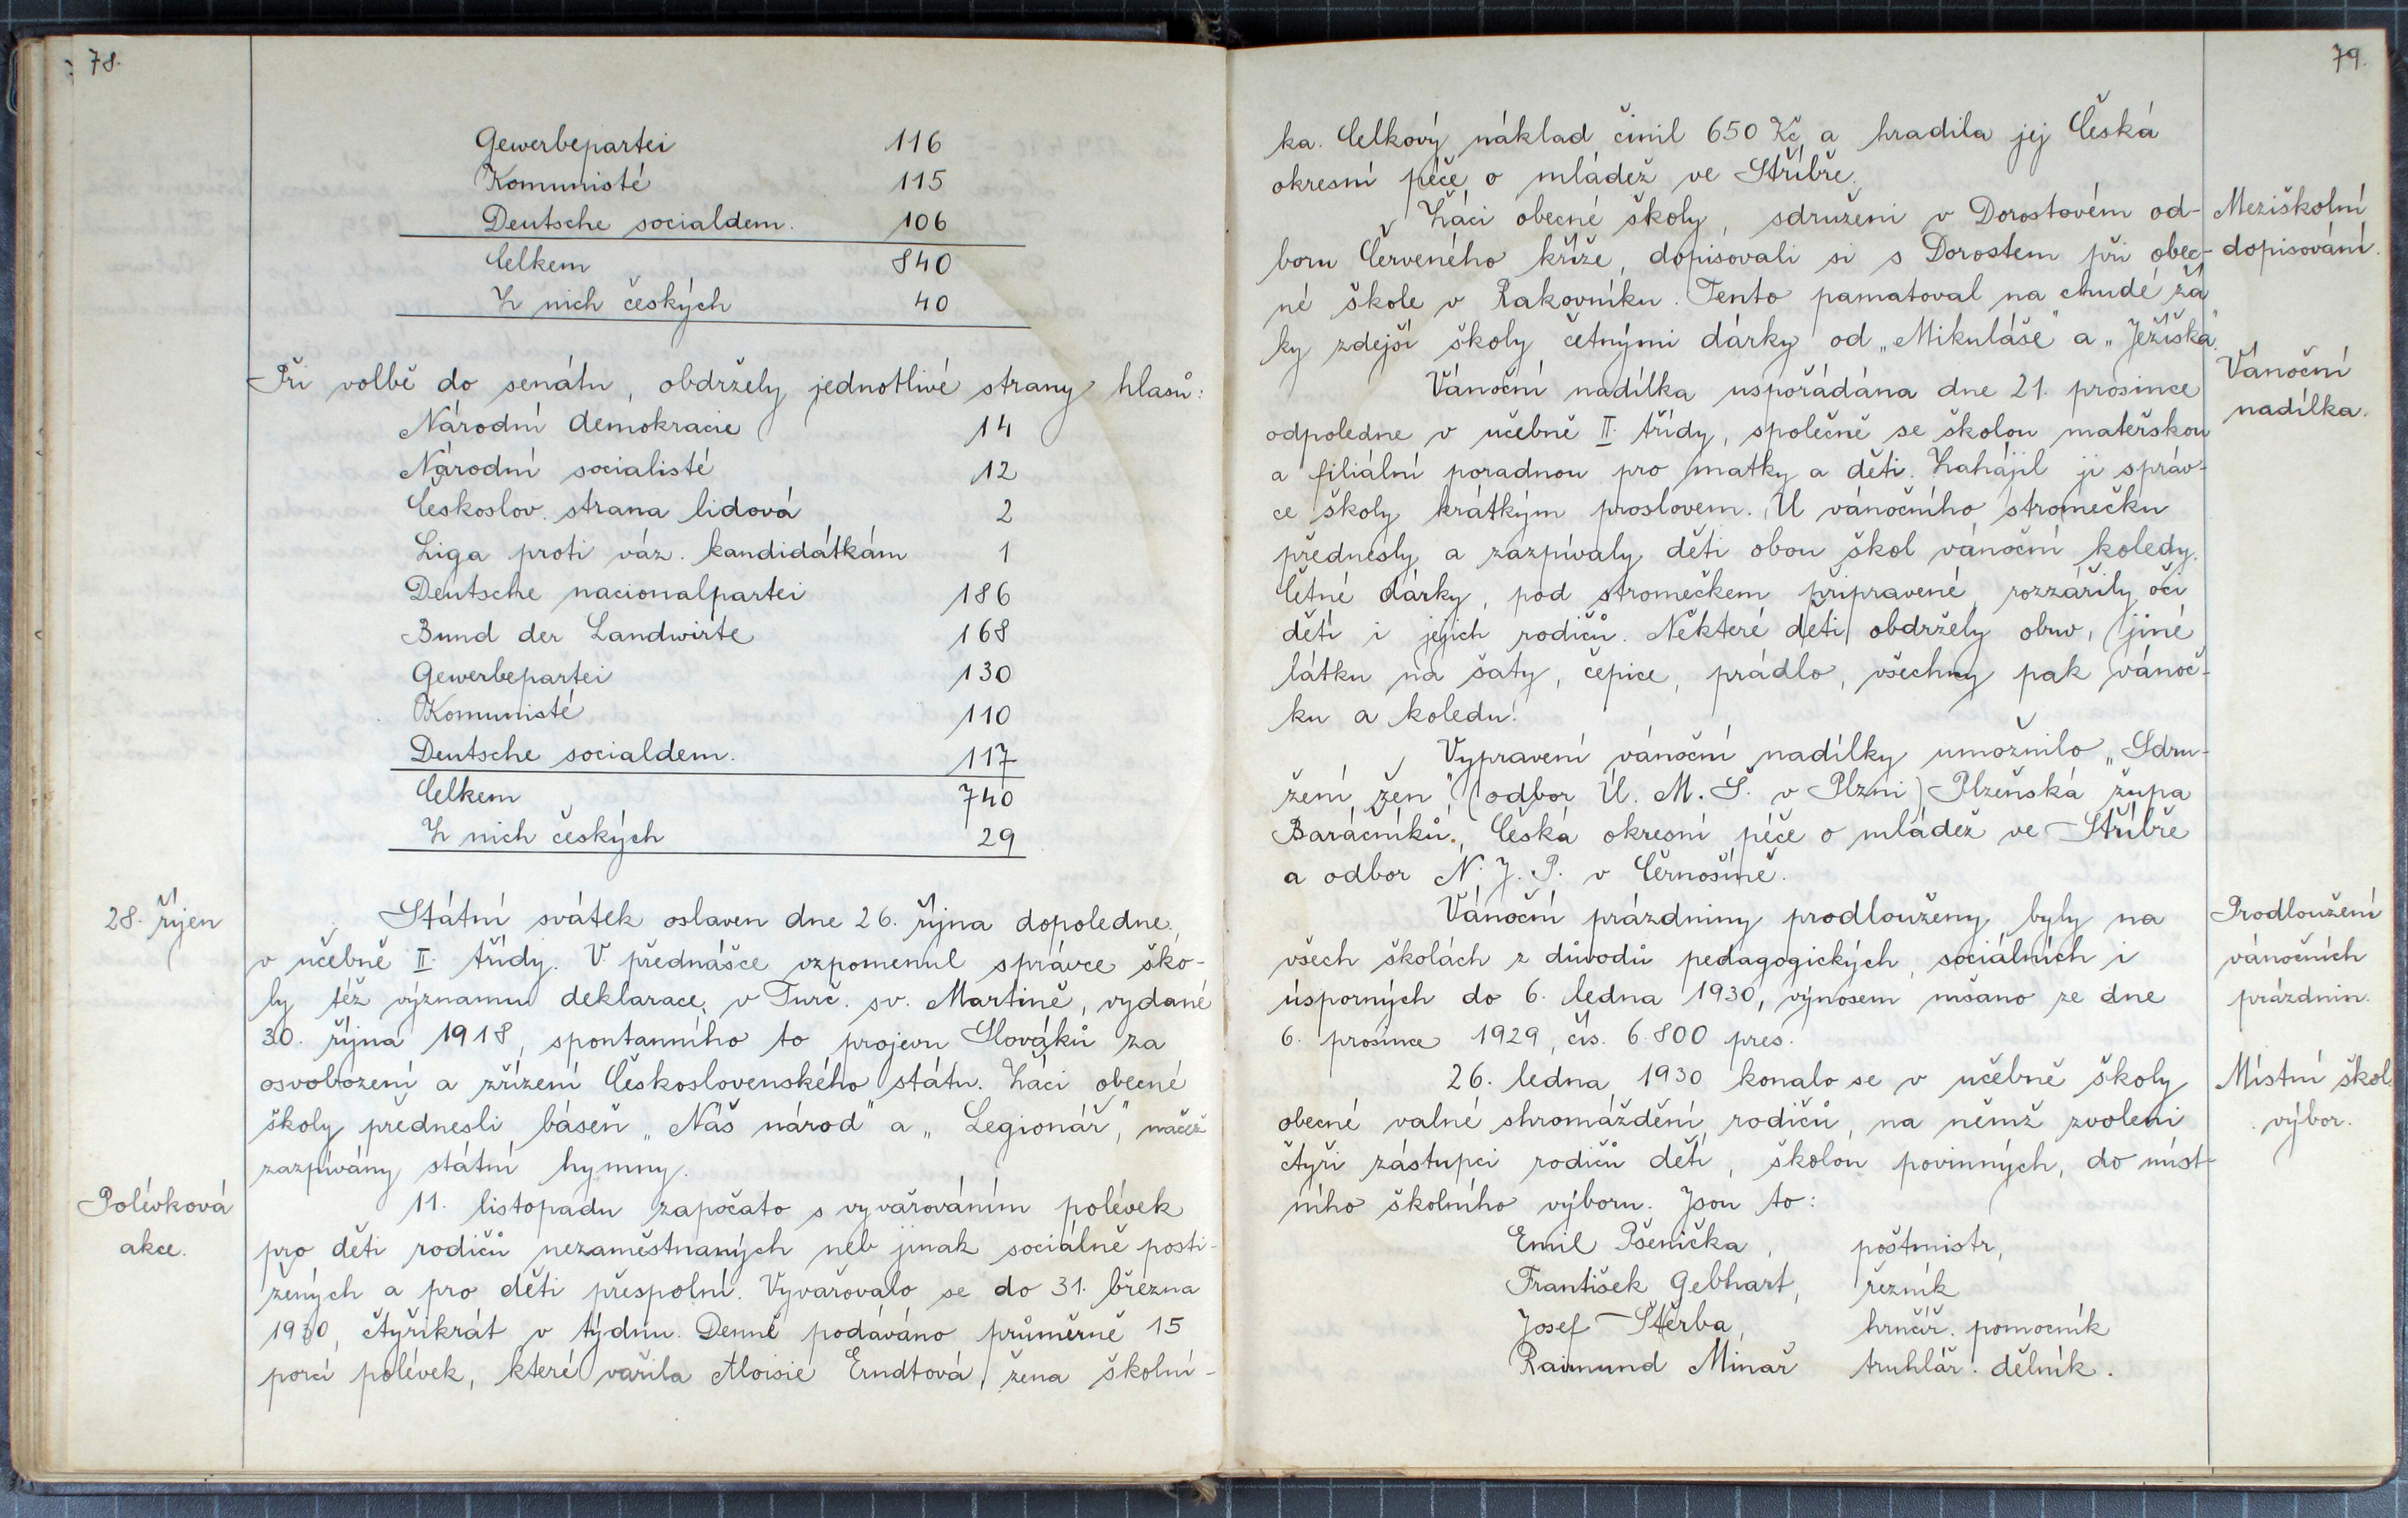 78.
Gewerbepartei 116
Komunisté 115
Deutsche socialdem. 106
Celkem 840
Z nich českých 40
Při volbě do senátu, obdržely jednotlivé strany hlasů:
Národní demokracie 14
Národní socialisté 12
Českoslov. strana lidová 2
Liga proti váz. kandidátkám 1
Deutsche nacionalpartei 186
Bund der Landwirte 168
Gewerbepartei 130
Komunisté 110
Deutsche socialdem. 117
Celkem 740
Z nich českých 29
28. říjen
Státní svátek oslaven dne 26. října dopoledne,
v učebně II. třídy. V přednášce vzpomenul správce ško-
ly též významu deklarace v Turč. sv. Martině, vydané
30. října 1918, spontanního to projevu Slováků za
osvobození a zřízení Československého státu. Žáci obecné
školy přednesli báseň „Náš národ" a „Legionář", načež
zazpívány státní hymny.
Polévková
akce.
11. listopadu započato s vyvařováním polévek
pro děti rodičů nezaměstnaných neb jinak sociálně posti-
žených a pro děti přespolní. Vyvařovalo se do 31. března
1930, čtyřikrát v týdnu. Denně podáváno průměrně 15
porcí polévek, které vařila Aloisie Erndtová, žena školní-
79.
ka. Celkový náklad činil 650 Kč a hradila jej Česká
okresní péče o mládež ve Stříbře.
Žáci obecné školy, sdruženi v Dorostovém od-
boru Červeného kříže, dopisovali si s Dorostem při obec-
né škole v Rakovníku. Tento pamatoval na chudé žá
ky zdejší školy četnými dárky od „Mikuláše" a „Ježíška".
Meziškolní
dopisování.
Vánoční nadílka uspořádána dne 21. prosince
odpoledne v učebně II. třídy, společně se školou mateřskou
a filiální poradnou pro matky a děti. Zahájil ji správ-
ce školy krátkým proslovem. U vánočního stromečku
přednesly a zazpívaly děti obou škol vánoční koledy.
Četné dárky, pod stromečkem připravené, rozzářily oči
dětí i jejich rodičů. Některé děti obdržely obuv, jiné
látku na šaty, čepice, prádlo, všechny pak vánoč-
ku a koledu.
Vánoční
nadílka.
Vypravení vánoční nadílky umožnilo „Sdru-
žení žen", (odbor Ú. M. Š. v Plzni) Plzeňská župa
Baráčníků, Česká okresní péče o mládež ve Stříbře
a odbor N. J. P. v Černošíně.
Vánoční prázdniny prodlouženy byly na
všech školách z důvodů pedagogických, sociálních i
úsporných do 6. ledna 1930, výnosem mšano ze dne
6. prosince 1929, čís. 6.800 pres.
Prodloužení
vánočních
prázdnin.
26. ledna 1930 konalo se v učebně školy
obecné valné shromáždění rodičů, na němž zvoleni
čtyři zástupci rodičů dětí, školou povinných, do míst-
ního školního výboru. Jsou to:
Místní škol.
výbor.
Emil Pšenička, poštmistr,
František Gebhart, řezník
Josef Štěrba, hrnčíř. pomocník
Raimund Minař truhlář. dělník.